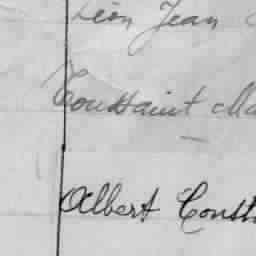 Léon Jean
Toussaint Ma
Albert Const